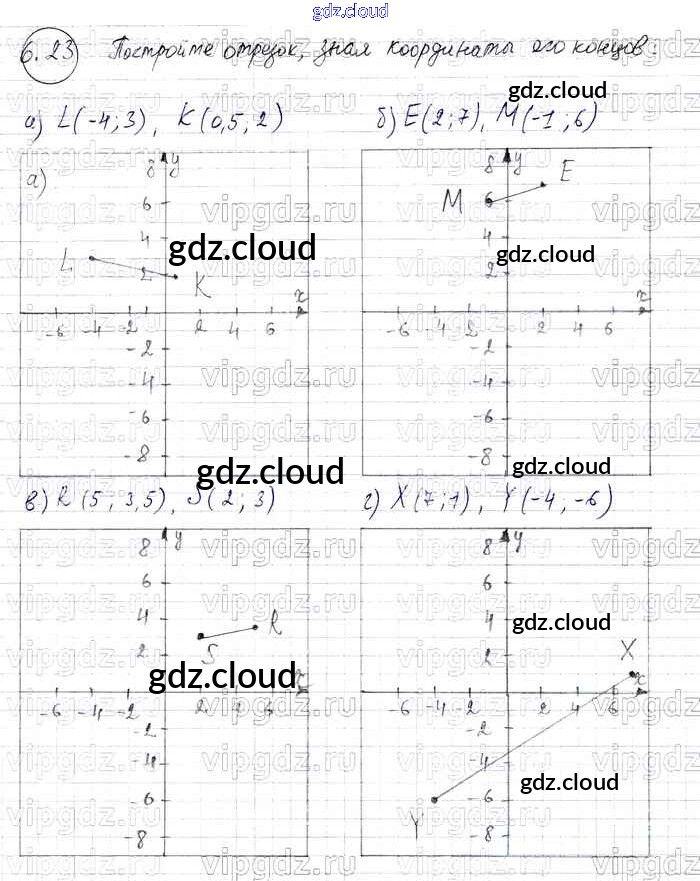 gdz.cloud
6.23 Постройте отрезок, зная координаты его концов.
а) L(-4; 3), K(0,5; 2) б) E(2; 7), M(-1; 6)
а)
8 y
6
4
2
L K
x
-6 -4 -2 2 4 6
-2
-4
-6
-8
8 y
6
4
2
M E
x
-6 -4 -2 2 4 6
-2
-4
-6
-8
gdz.cloud
gdz.cloud
gdz.cloud
gdz.cloud
gdz.cloud
в) R(5; 3,5), S(2; 3) г) X(7; 1), Y(-4; -6)
8 y
6
4
2
S R
x
-6 -4 -2 2 4 6
-2
-4
-6
-8
8 y
6
4
2
X
x
-6 -4 -2 2 4 6
-2
-4
-6
-8
Y
gdz.cloud
gdz.cloud
gdz.cloud
vipgdz.ru vipgdz.ru vipgdz.ru vipgdz.ru